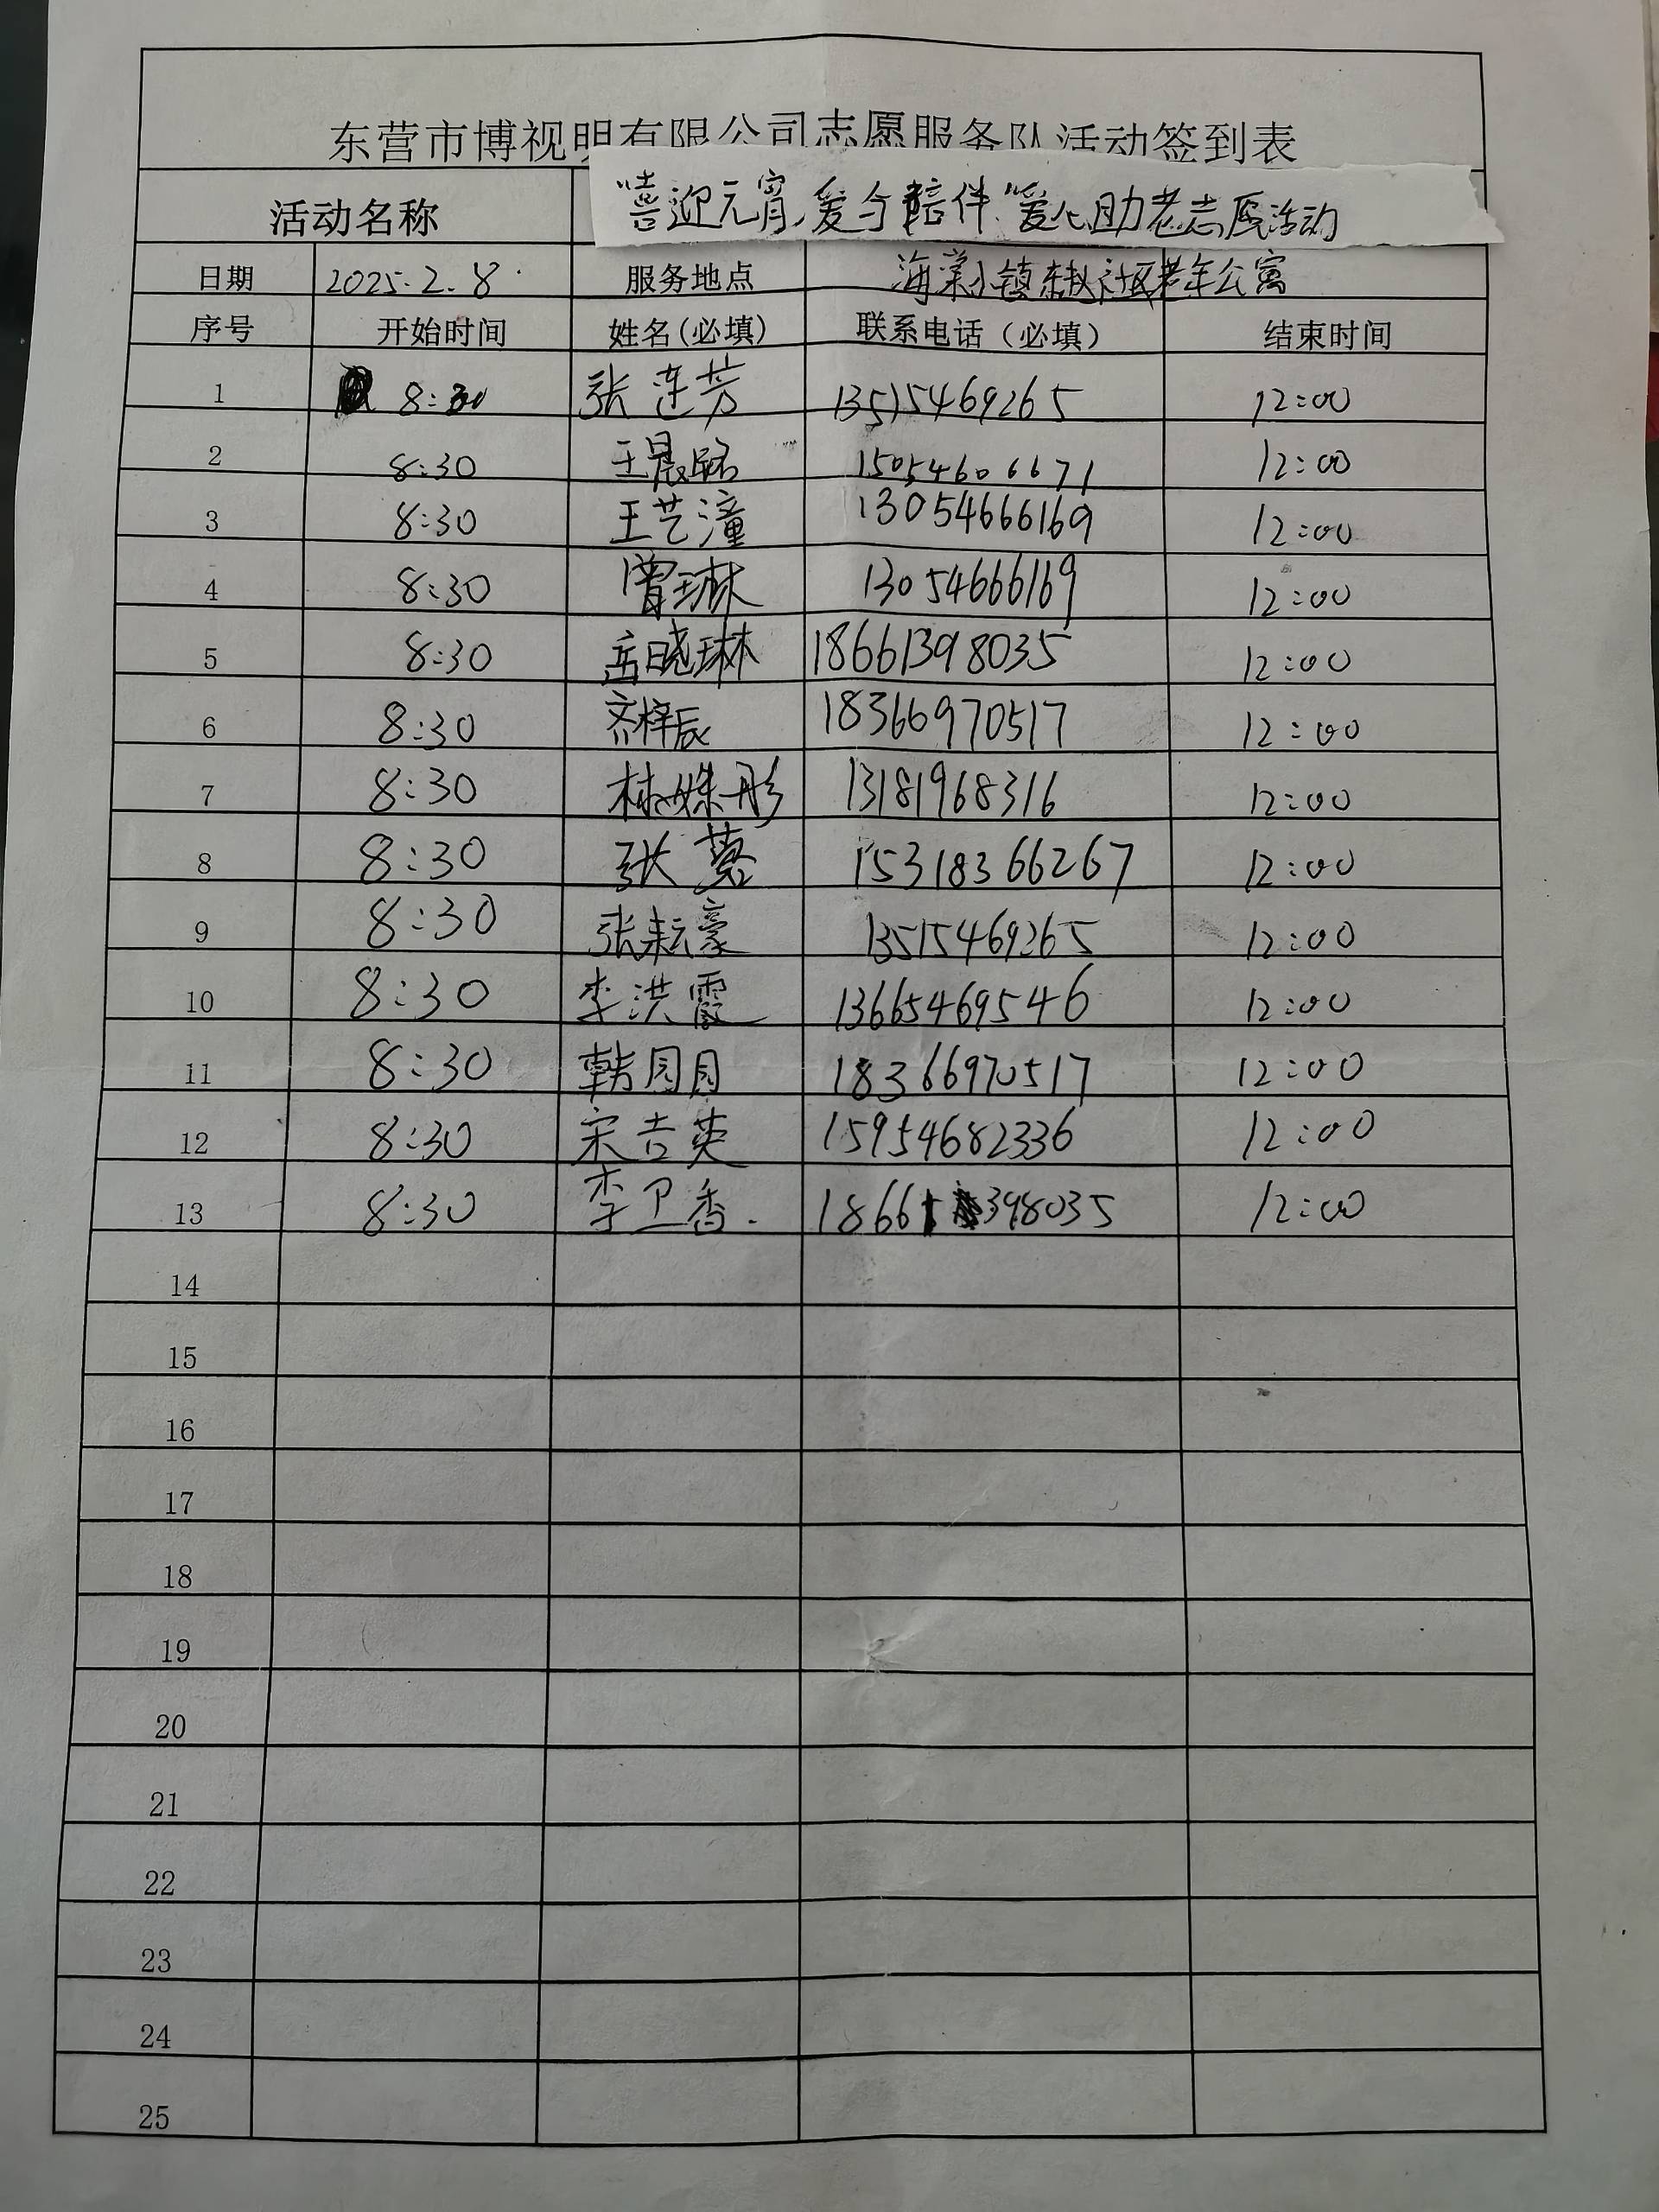 东营市博视明有限公司志愿服务队活动签到表
活动名称 "喜迎元宵,爱与陪伴"爱心助老志愿活动
日期 2025.2.8. 服务地点 海棠小镇东赵社区老年公寓
序号 开始时间 姓名(必填) 联系电话(必填) 结束时间
1 8:30 张连芳 13515469265 12:00
2 8:30 王晨铭 15054606671 12:00
3 8:30 王艺潼 13054666169 12:00
4 8:30 曾琳 13054666169 12:00
5 8:30 岳晓琳 18661398035 12:00
6 8:30 齐梓辰 18366970517 12:00
7 8:30 林姝彤 13181968316 12:00
8 8:30 张 15318366267 12:00
9 8:30 张耘豪 13515469265 12:00
10 8:30 李洪霞 13665469546 12:00
11 8:30 韩园园 18366970517 12:00
12 8:30 宋吉英 15954682336 12:00
13 8:30 李卫香. 18661398035 12:00
14
15
16
17
18
19
20
21
22
23
24
25